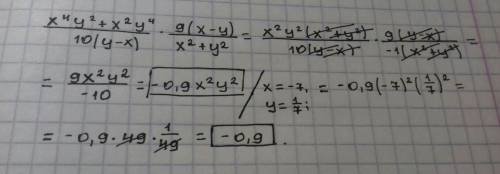 (x⁴y² + x²y⁴)/(10(y-x)) · (9(x-y))/(x²+y²) = (x²y²(x²+y²))/(10(y-x)) · (9(y-x))/(-1(x²+y²)) =
= (9x²y²)/(-10) = -0,9x²y² / x=-7, y=1/7; = -0,9(-7)²(1/7)² =
= -0,9 · 49 · 1/49 = -0,9 .